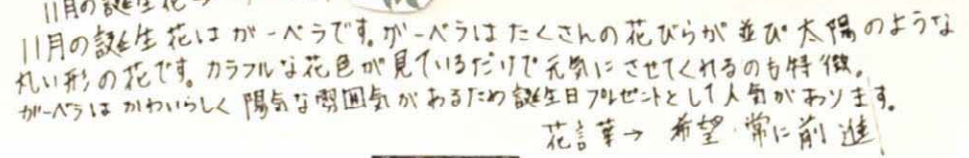 11月の誕生花→
11月の誕生花はガーベラです。ガーベラはたくさんの花びらが並び太陽のような
丸い形の花です。カラフルな花色が見ているだけで元気にさせてくれるのも特徴。
ガーベラはかわいらしく陽気な雰囲気があるため誕生日プレゼントとして人気があります。
花言葉→ 希望・常に前進